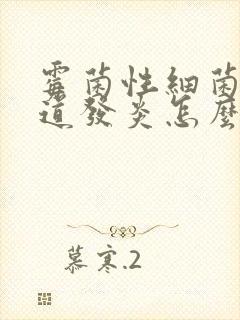 霉菌性細菌
道發炎怎麼
慕寒.2